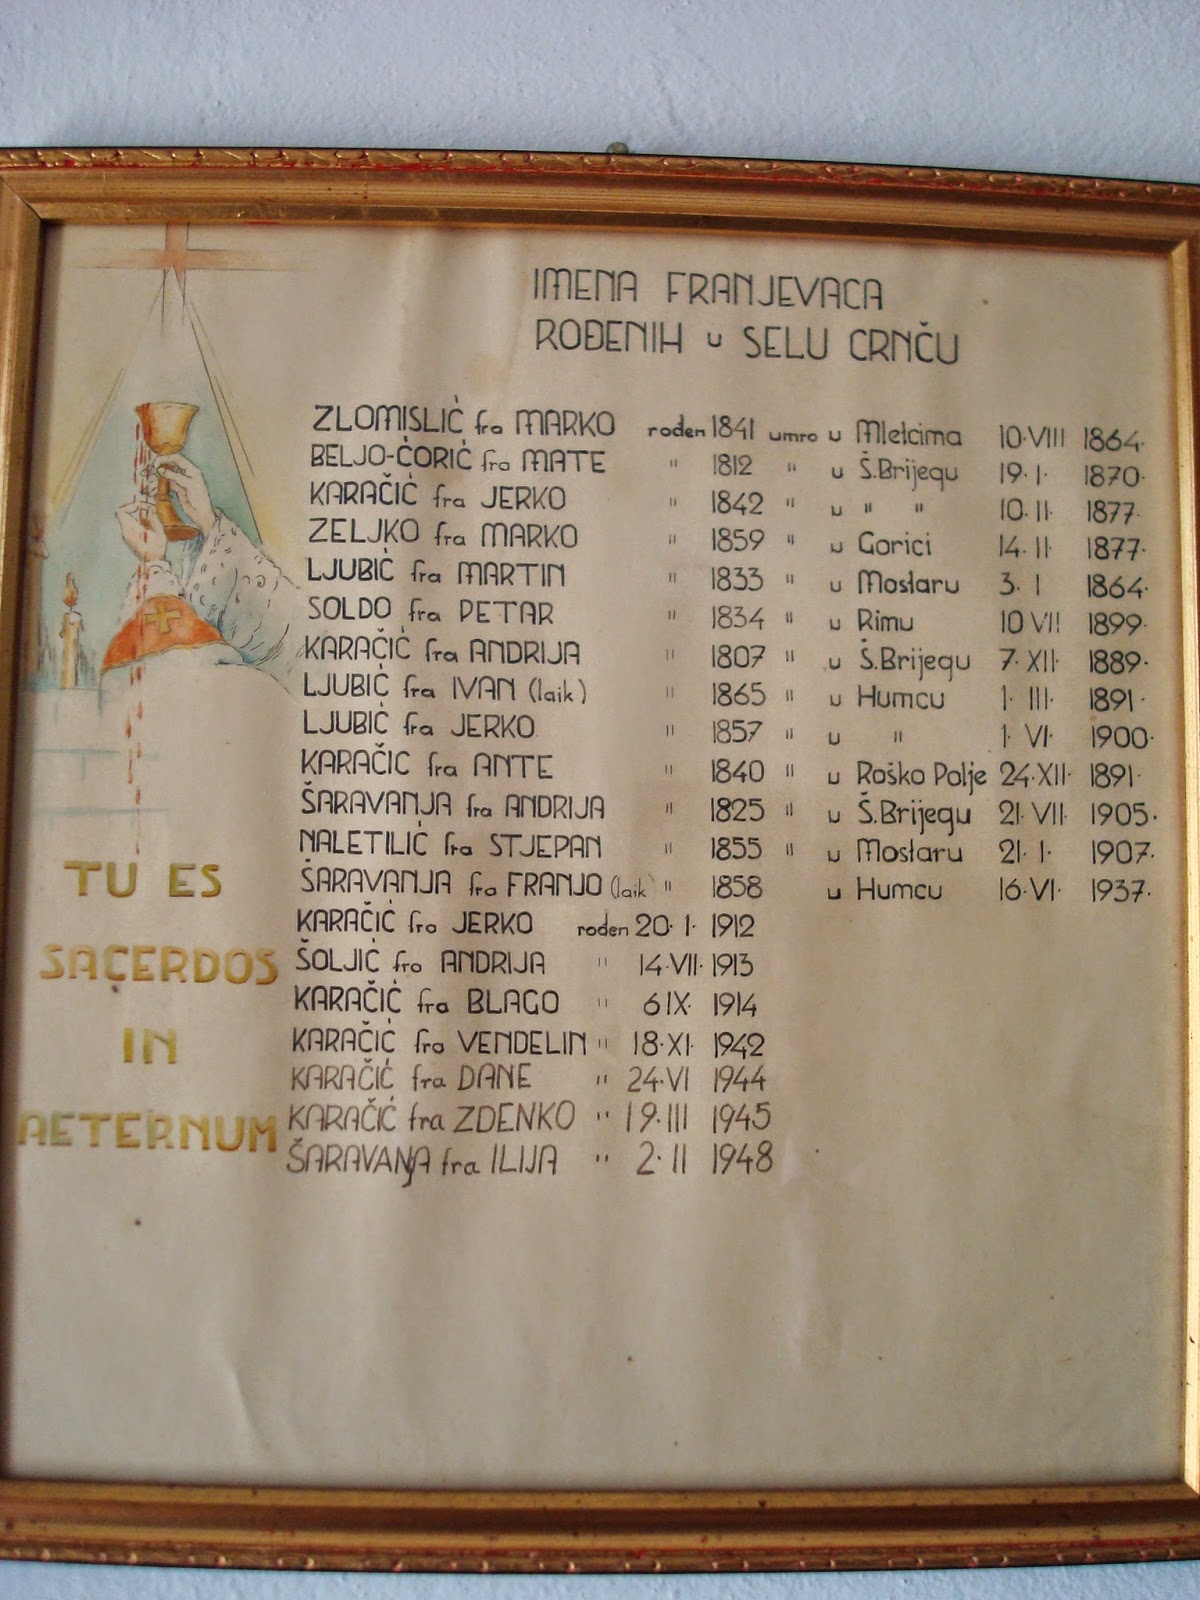 IMENA FRANJEVACA
ROĐENIH u SELU CRNČU
ZLOMISLIĆ fra MARKO rođen 1841 umro u Mletcima 10·VIII 1864·
BELJO-ĆORIĆ fra MATE " 1812 " u Š.Brijegu 19·I· 1870·
KARAČIĆ fra JERKO " 1842 " u " " 10·II· 1877·
ZELJKO fra MARKO " 1859 " u Gorici 14·II 1877·
LJUBIĆ fra MARTIN " 1833 " u Mostaru 3·I 1864·
SOLDO fra PETAR " 1834 " u Rimu 10 VII 1899·
KARAČIĆ fra ANDRIJA " 1807 " u Š.Brijegu 7·XII· 1889·
LJUBIĆ fra IVAN (laik) " 1865 " u Humcu 1·III· 1891·
LJUBIĆ fra JERKO " 1857 " u " 1·VI· 1900·
KARAČIC fra ANTE " 1840 " u Roško Polje 24·XII· 1891·
ŠARAVANJA fra ANDRIJA " 1825 " u Š.Brijegu 21·VII· 1905·
NALETILIĆ fra STJEPAN " 1855 " u Mostaru 21·I· 1907·
ŠARAVANJA fra FRANJO (laik) " 1858 u Humcu 16·VI· 1937·
KARAČIĆ fra JERKO rođen 20·I·1912
ŠOLJIĆ fra ANDRIJA " 14·VII·1913
KARAČIĆ fra BLAGO " 6 IX· 1914
KARAČIĆ fra VENDELIN " 18·XI· 1942
KARAČIĆ fra DANE " 24·VI 1944
KARAČIĆ fra ZDENKO " 19·III 1945
ŠARAVANJA fra ILIJA " 2·II 1948
TU ES
SACERDOS
IN
AETERNUM